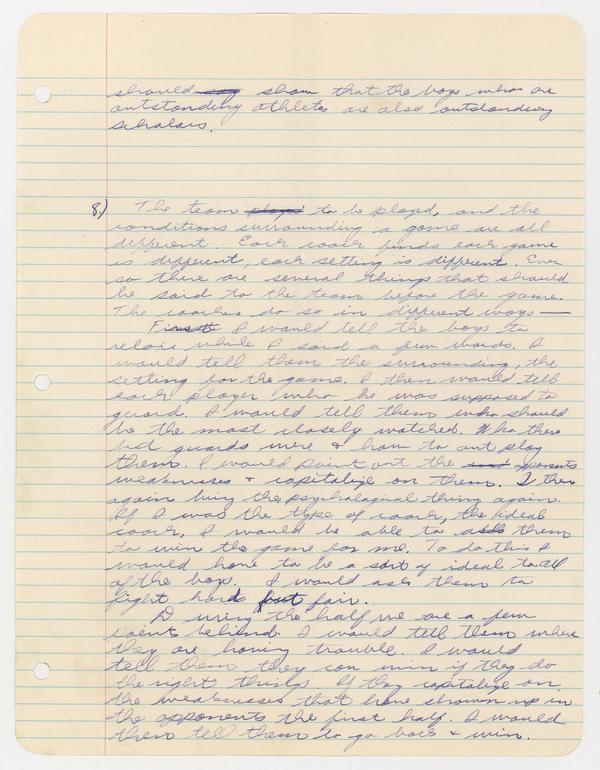 should say show that the boys who are
outstanding athletes are also outstanding
scholars.
8.) The team plays to be played, and the
conditions surrounding a game are all
different. Each coach finds each game
is different, each setting is different. Even
so there are several things that should
be said to the team before the game.
The coaches do so in different ways —
First I would tell the boys to
relax while I said a few words. I
would tell them the surrounding, the
setting for the game. I then would tell
each player who he was supposed to
guard. I would tell them who should
be the most closely watched. Who there
best guards were & how to out play
them. I would point out the opponents
weaknesses & capitalize on them. I then
again bring the psychological thing again.
If I was the type of coach, the ideal
coach, I would be able to ask them
to win the game for me. To do this I
would have to be a sort of ideal to all
of the boys. I would ask them to
fight hard but fair.
During the half we are a few
points behind. I would tell them where
they are having trouble. I would
tell them they can win if they do
the right things. If they capitalize on
the weaknesses that have shown up in
the opponents the first half. I would
then tell them to go back & win.